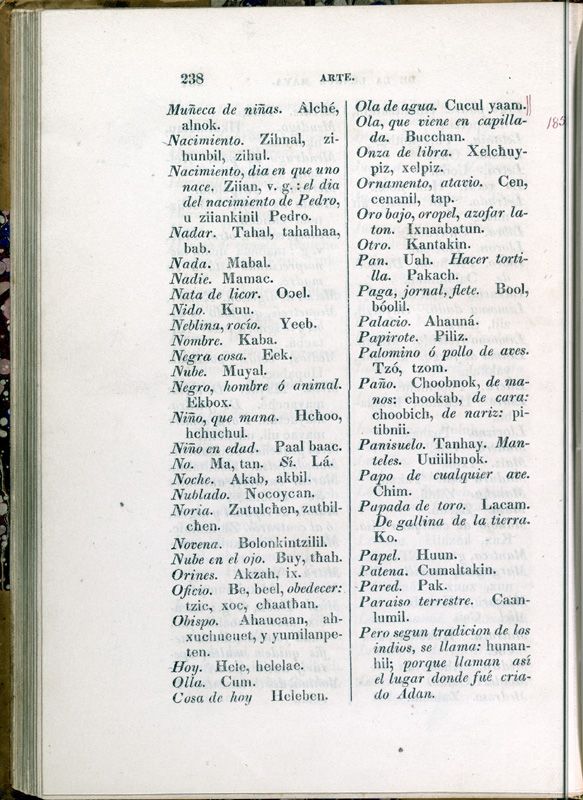 238
ARTE.
Muñeca de niñas. Alché,
alnok.
Nacimiento. Zihnal, zi-
hunbil, zihul.
Nacimiento, dia en que uno
nace. Ziian, v. g.: el dia
del nacimiento de Pedro,
u ziiankinil Pedro.
Nadar. Tahal, tahalhaa,
bab.
Nada. Mabal.
Nadie. Mamac.
Nata de licor. Oɔel.
Nido. Kuu.
Neblina, rocío. Yeeb.
Nombre. Kaba.
Negra cosa. Eek.
Nube. Muyal.
Negro, hombre ó animal.
Ekbox.
Niño, que mana. Hchoo,
hchuchul.
Niño en edad. Paal baac.
No. Ma, tan. Sí. Lá.
Noche. Akab, akbil.
Nublado. Nocoycan.
Noria. Zutulchen, zutbil-
chen.
Novena. Bolonkintzilil.
Nube en el ojo. Buy, thah.
Orines. Akzah, ix.
Oficio. Be, beel, obedecer:
tzic, xoc, chaathan.
Obispo. Ahaucaan, ah-
xuchueuet, y yumilanpe-
ten.
Hoy. Hele, helelae.
Olla. Cum.
Cosa de hoy Heleben.
Ola de agua. Cucul yaam.
Ola, que viene en capilla-
da. Bucchan.
Onza de libra. Xelchuy-
piz, xelpiz.
Ornamento, atavio. Cen,
cenanil, tap.
Oro bajo, oropel, azofar la-
ton. Ixnaabatun.
Otro. Kantakin.
Pan. Uah. Hacer torti-
lla. Pakach.
Paga, jornal, flete. Bool,
bóolil.
Palacio. Ahauná.
Papirote. Piliz.
Palomino ó pollo de aves.
Tzó, tzom.
Paño. Choobnok, de ma-
nos: chookab, de cara:
choobich, de nariz: pi-
tibnii.
Panisuelo. Tanhay. Man-
teles. Uuiilibnok.
Papo de cualquier ave.
Chim.
Papada de toro. Lacam.
De gallina de la tierra.
Ko.
Papel. Huun.
Patena. Cumaltakin.
Pared. Pak.
Paraiso terrestre. Caan-
lumil.
Pero segun tradicion de los
indios, se llama: hunan-
hil; porque llaman así
el lugar donde fué cria-
do Adan.